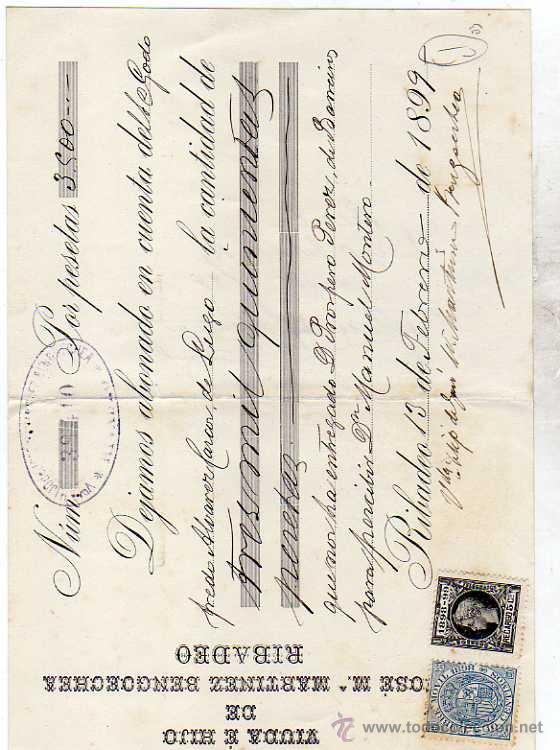 VIUDA É HIJO
DE
JOSÉ Mª MARTINEZ BENGOECHEA
RIBADEO
Núm. Por pesetas 3500
Dejamos abonado en cuenta de D. Godo
fredo Alvarez Carcos, de Lugo la cantidad de
tres mil quinientas
pesetas
que nos ha entregado D. Prospero Perez, de Barreiros
para percibir Dn Manuel Montero.
Ribadeo 13 de Febrero de 1899
Viuda é hijo de José M Martinez Bengoechea
1898-99
todocoleccion.net